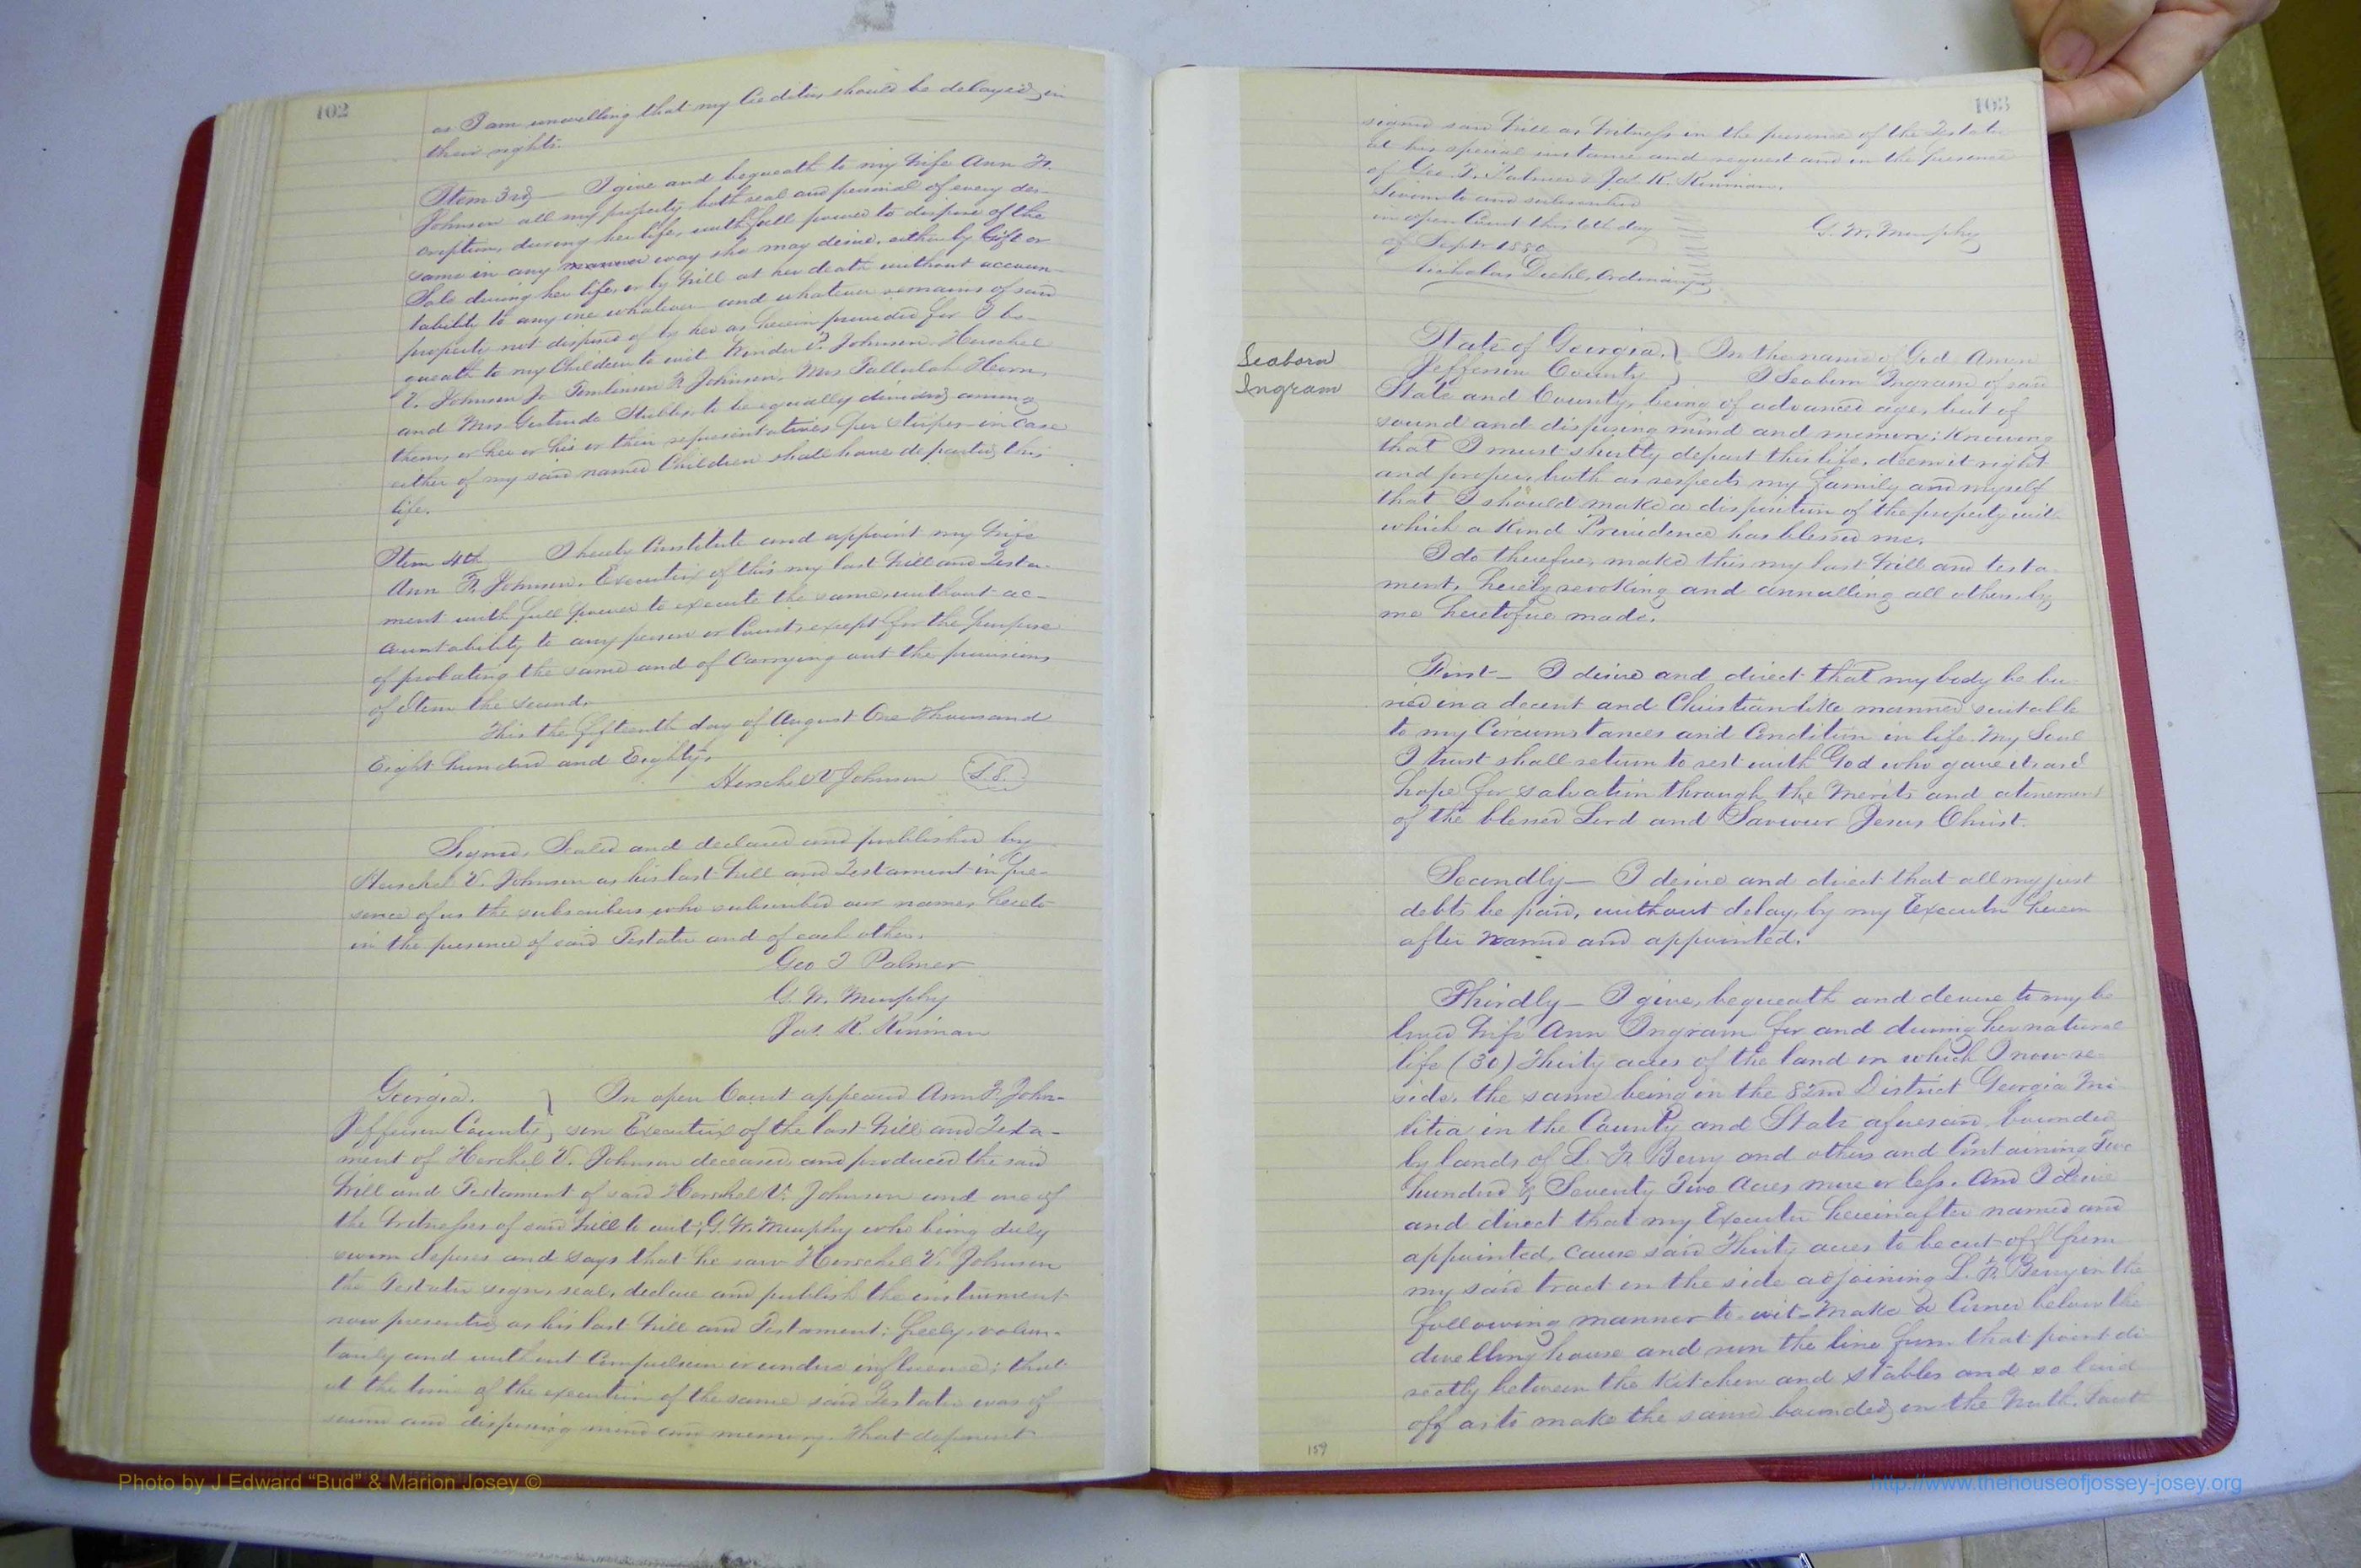 102
as I am unwilling that my Creditors should be delayed in
their rights.
Item 3rd — I give and bequeath to my Wife Ann F.
Johnson all my property both real and personal of every des-
cription, during her life, with full power to dispose of the
same in any manner way she may desire, either by Gift or
Sale during her life, or by Will at her death without accoun-
tability to any one whatever and whatever remains of said
property not disposed of by her as herein provided for I be-
queath to my Children to wit Winder P. Johnson, Herschel
V. Johnson Jr Tomlinson F. Johnson, Mrs Tallulah Horn,
and Mrs Gertrude Stubbs, to be equally divided among
them, or her or his or their representatives per stirpes in case
either of my said named Children shall have departed this
life.
Item 4th I hereby Constitute and appoint my Wife
Ann F. Johnson, Executrix of this my last Will and Testa-
ment with full power to execute the same, without ac-
countability to any person or Court, except for the purpose
of probating the same and of Carrying out the provisions
of Item the second.
This the fifteenth day of August One Thousand
Eight hundred and Eighty.
Herschel V Johnson L.S.
Signed, Sealed and declared and published by
Herschel V. Johnson as his last Will and Testament in pre-
sence of us the subscribers who subscribed our names hereto
in the presence of said Testator and of each other.
Geo T Palmer
G. W. Murphy
Jas. K. Kinman
Georgia. In open Court appeared Ann F. John-
Jefferson County son Executrix of the last Will and Testa-
ment of Herschel V. Johnson deceased and produced the said
Will and Testament of said Herschel V. Johnson and one of
the Witnesses of said Will to wit; G. W. Murphy who being duly
sworn deposes and says that he saw Herschel V. Johnson
the Testator sign, seal, declare and publish the instrument
now presented as his last Will and Testament; freely, volun-
tarily and without Compulsion or undue influence; that
at the time of the execution of the same said Testator was of
sound and disposing mind and memory. That deponent
103
signed said Will as Witness in the presence of the Testator
at his special instance and request and in the presence
of Geo. T. Palmer & Jas. K. Kinman.
Sworn to and subscribed
in open Court this 6th day G. W. Murphy
of Sept. 1880
Nicholas Diehl, Ordinary
Seaborn
Ingram
State of Georgia. In the name of God Amen
Jefferson County I Seaborn Ingram of said
State and County, being of advanced age, but of
sound and disposing mind and memory; Knowing
that I must shortly depart this life, deem it right
and proper, both as respects my family and myself
that I should make a disposition of the property with
which a Kind Providence has blessed me.
I do therefore, make this my last Will and testa-
ment, hereby revoking and annulling all others, by
me heretofore made.
First — I desire and direct that my body be bu-
ried in a decent and Christian like manner suitable
to my Circumstances and Condition in life. My Soul
I trust shall return to rest with God who gave it, as I
hope for salvation through the Merits and atonement
of the blessed Lord and Saviour Jesus Christ.
Secondly — I desire and direct that all my just
debts be paid, without delay, by my Executor herein
after named and appointed.
Thirdly — I give, bequeath and devise to my be
loved Wife Ann Ingram for and during her natural
life (30) Thirty acres of the land on which I now re-
side, the same being in the 82nd District Georgia Mi
litia in the County and State aforesaid bounded
by lands of L. F. Berry and others and Containing Two
hundred & Seventy Two Acres more or less. And I desire
and direct that my Executor hereinafter named and
appointed, cause said Thirty acres to be cut off from
my said tract on the side adjoining L. F. Berry in the
following manner to-wit - Make a Corner below the
dwelling house and run the line from that point di
rectly between the Kitchen and Stables and so laid
off as to make the same bounded on the North, South
159
Photo by J Edward “Bud” & Marion Josey ©
http://www.thehouseofjossey-josey.org